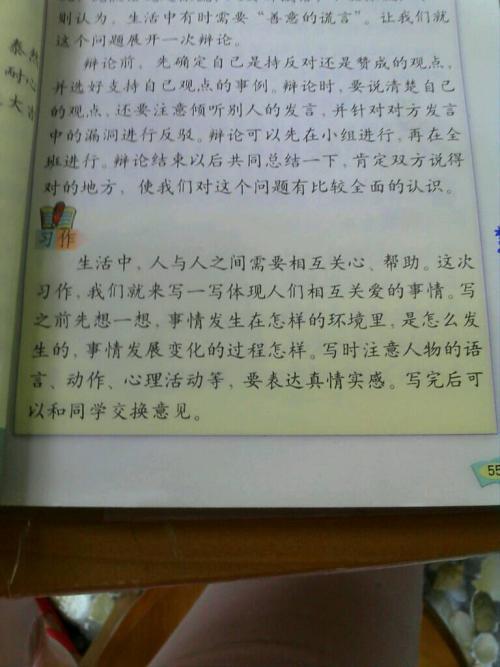 则认为，生活中有时需要“善意的谎言”。让我们就
这个问题展开一次辩论。
辩论前，先确定自己是持反对还是赞成的观点，
并选好支持自己观点的事例。辩论时，要说清楚自己
的观点，还要注意倾听别人的发言，并针对对方发言
中的漏洞进行反驳。辩论可以先在小组进行，再在全
班进行。辩论结束以后共同总结一下，肯定双方说得
对的地方，使我们对这个问题有比较全面的认识。
习作
生活中，人与人之间需要相互关心、帮助。这次
习作，我们就来写一写体现人们相互关爱的事情。写
之前先想一想，事情发生在怎样的环境里，是怎么发
生的，事情发展变化的过程怎样。写时注意人物的语
言、动作、心理活动等，要表达真情实感。写完后可
以和同学交换意见。
泰然
耐心
大
55